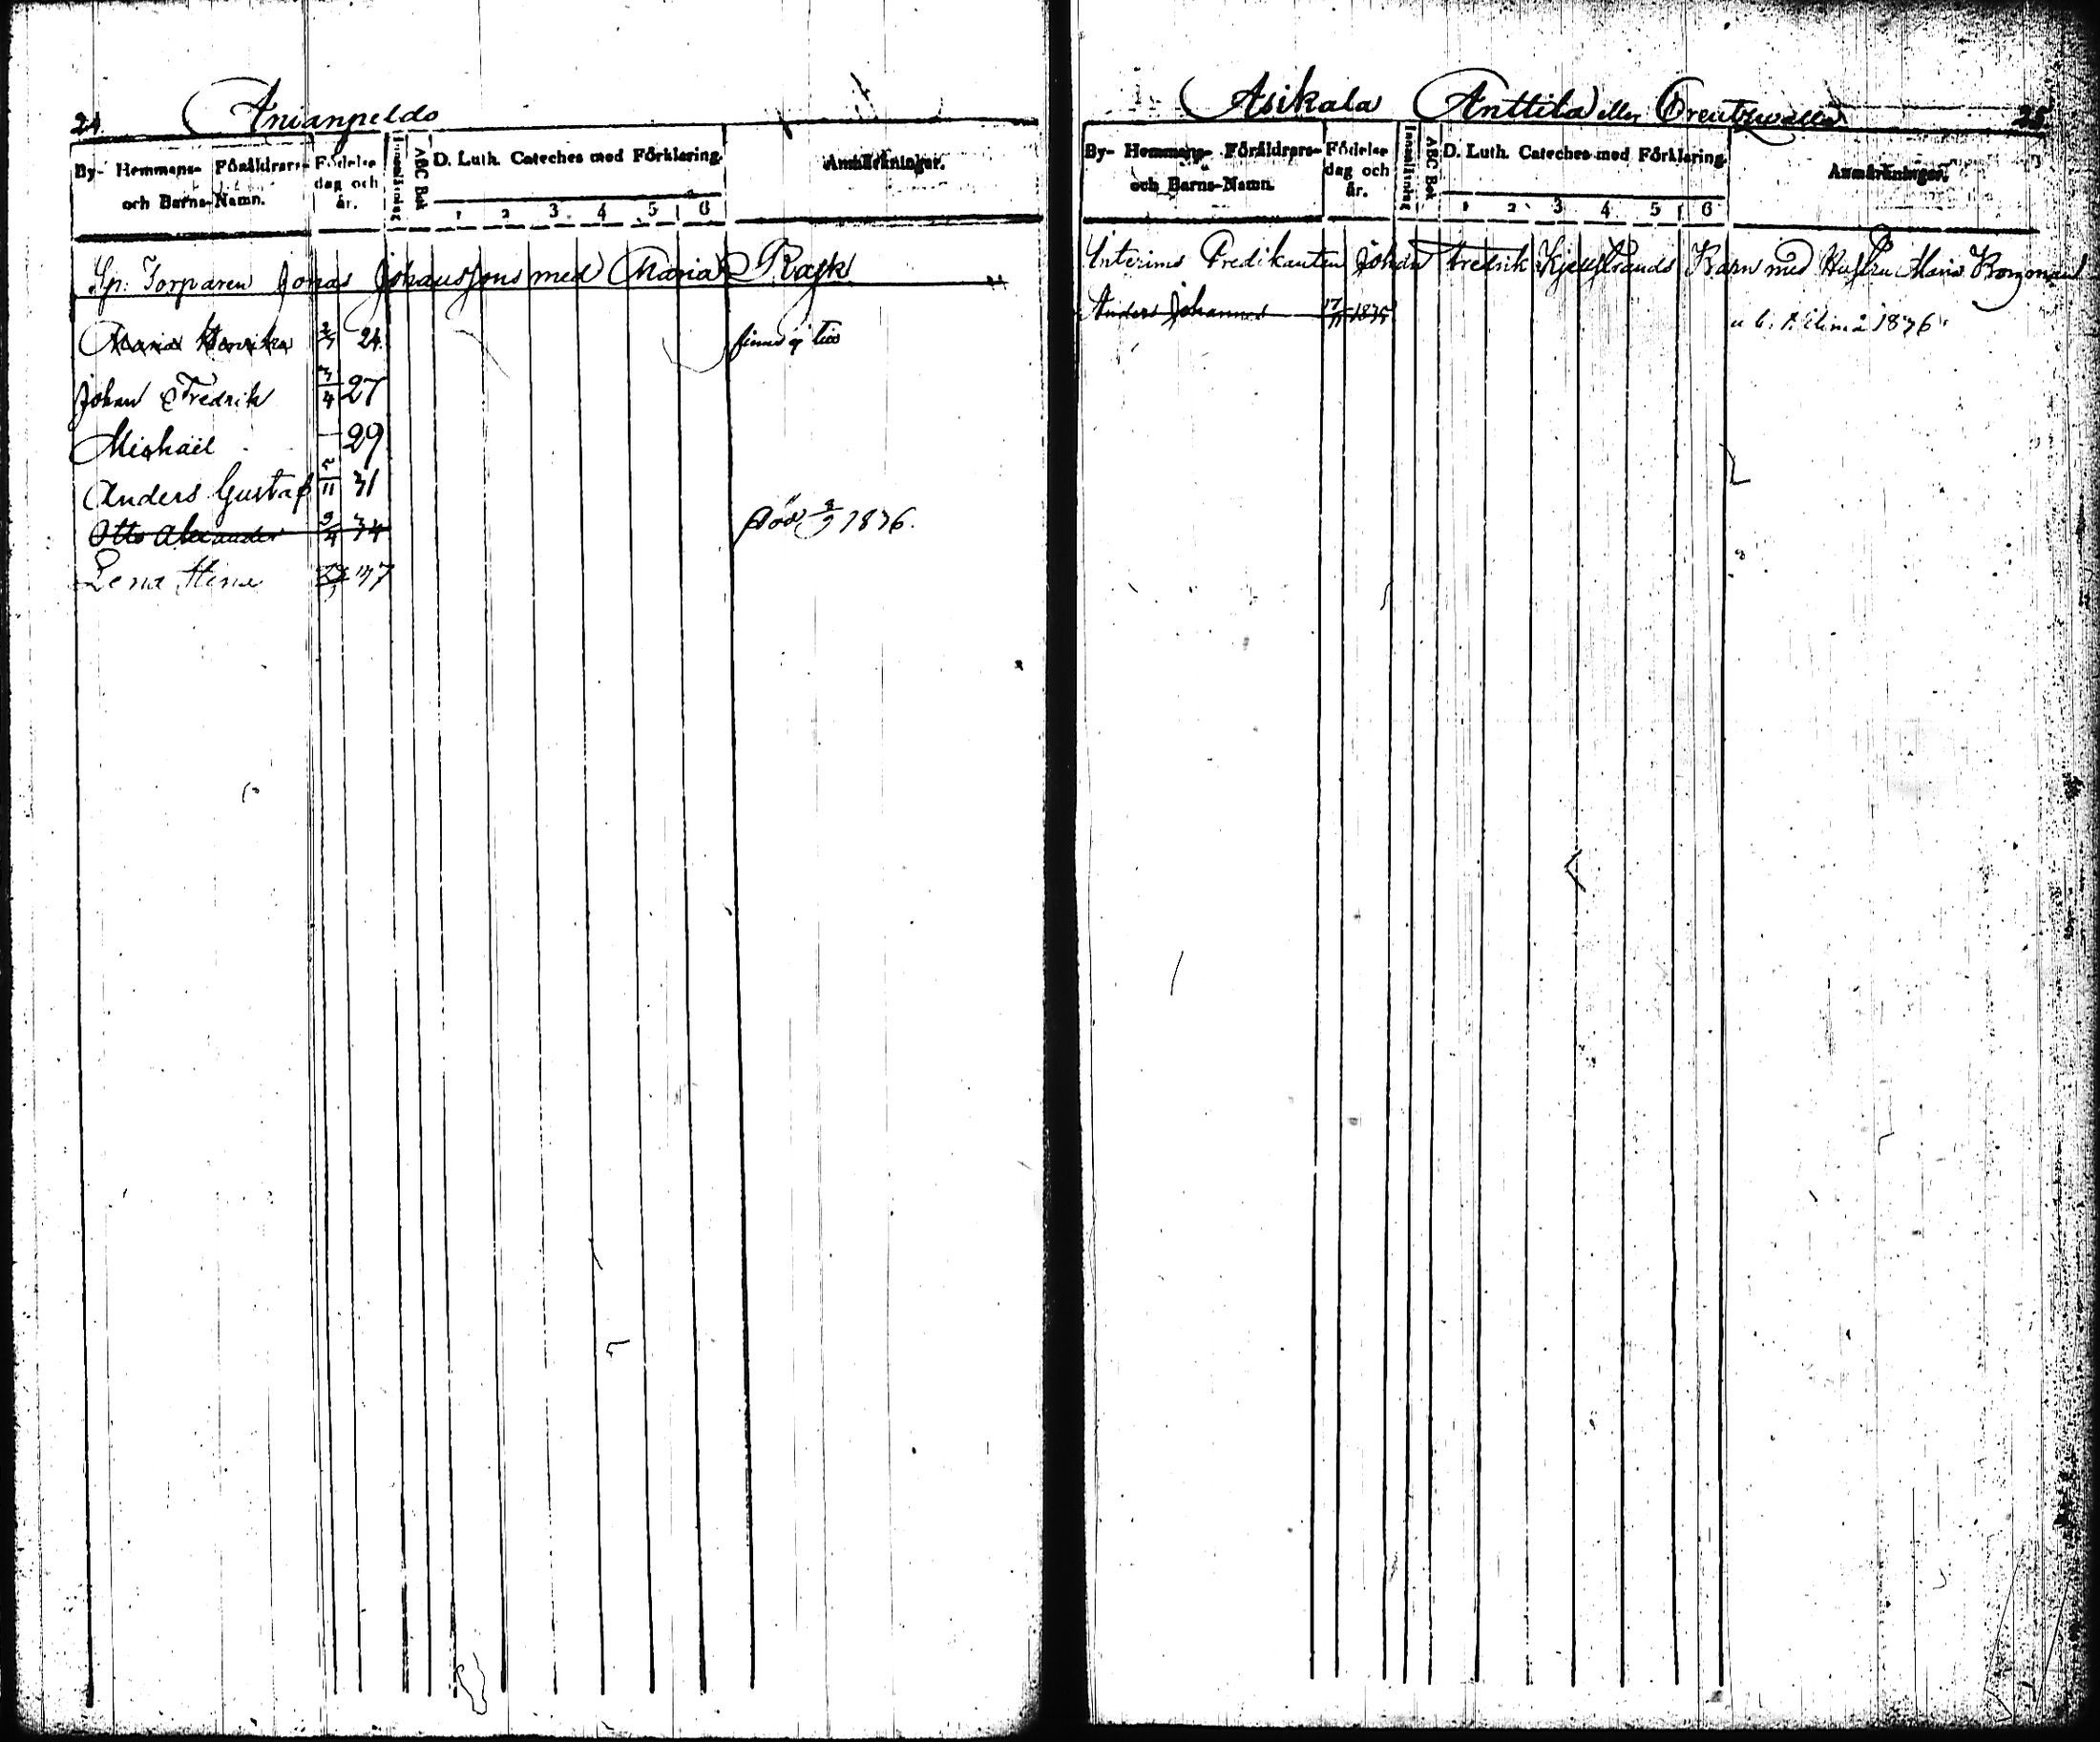 24. Anianpeldo
By- Hemmans- Föräldrars- och Barns-Namn. Födelse dag och år. Innanläsning ABC Bok D. Luth. Cateches med Förklaring. Anmärkningar.
1 2 3 4 5 6
Sp: Torparen Jonas Johanssons med Maria Rask
Maria Henrika 24. finnes ej
Johan Fredrik 7/4 27
Michaël — 29
Anders Gustaf 5/11 31
Otto Alexander 9/4 34 död 1836.
Lena Stina 37
Asikala Anttila eller Creutzwalla 25
By- Hemmans- Föräldrars- och Barns-Namn. Födelse dag och år. Innanläsning ABC Bok D. Luth. Cateches med Förklaring. Anmärkningar.
1 2 3 4 5 6
Interims Predikanten Johan Fredrik Barn med Hustru Maria Borgman
Anders Johannes 17/11 1835 1836